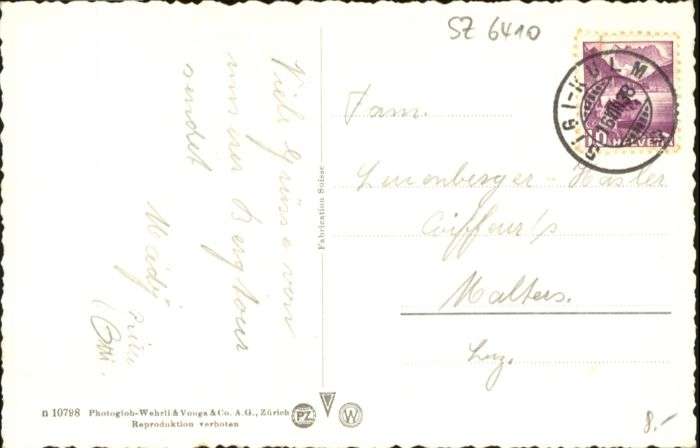 SZ 6410
RIGI-KULM
10 HELVETIA
Viele Grüsse von
unserer Bergtour
sendet
Mädy
Fam.
Luzenberger-Hasler
Coiffeur/s
Malters.
Luz.
Fabrication Suisse
n 10798 Photoglob-Wehrli & Vouga & Co. A.G., Zürich
Reproduktion verboten
PZ
W
8.-